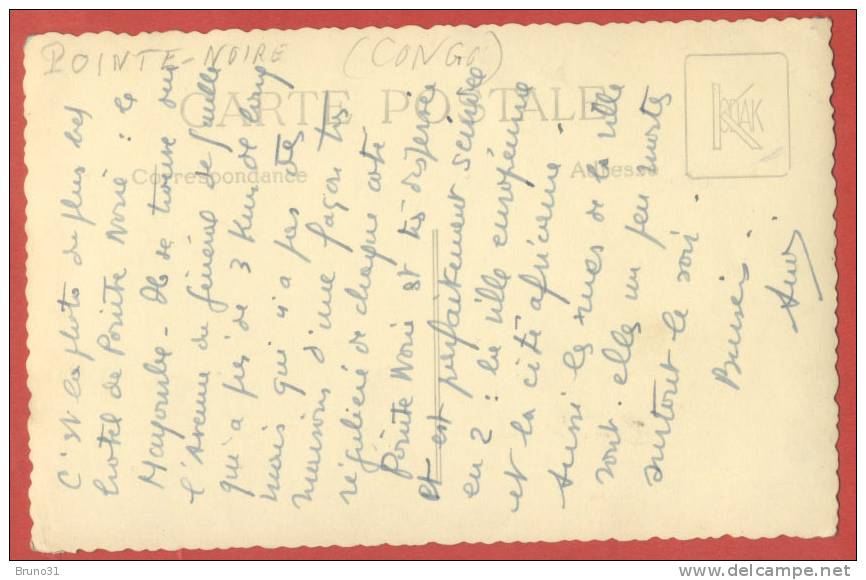 POINTE-NOIRE (CONGO)
CARTE POSTALE
KODAK
Correspondance
Adresse
C'est la photo du plus bel
hotel de Pointe Noire : le
Mayombe - Il se trouve sur
l'Avenue du Général de Gaulle
qui a près de 3 Kms de long
mais qui n'a pas des
maisons d'une façon très
régulière de chaque coté
Pointe Noire est très dispersée
et est parfaitement scindée
en 2 : la ville européenne
et la cité africaine.
Aussi les rues de la ville
sont elles un peu mortes
surtout le soir.
Baisers.
Bruno31
delcampe.net